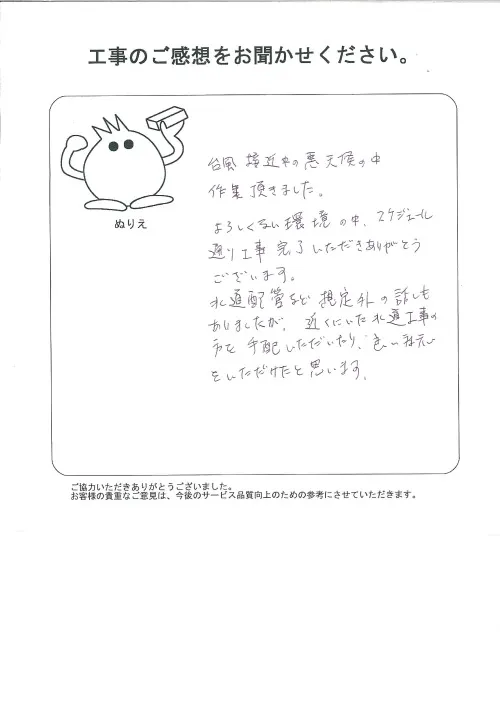 工事のご感想をお聞かせください。
ぬりえ
台風接近中の悪天候の中
作業頂きました。
よろしくない環境の中、スケジュール
通り工事完了いただきありがとう
ございます。
水道配管など想定外の話しも
ありましたが、近くにいた水道工事の
方を手配いただいたり、良い
をいただけたと思います。
ご協力いただきありがとうございました。
お客様の貴重なご意見は、今後のサービス品質向上のための参考にさせていただきます。